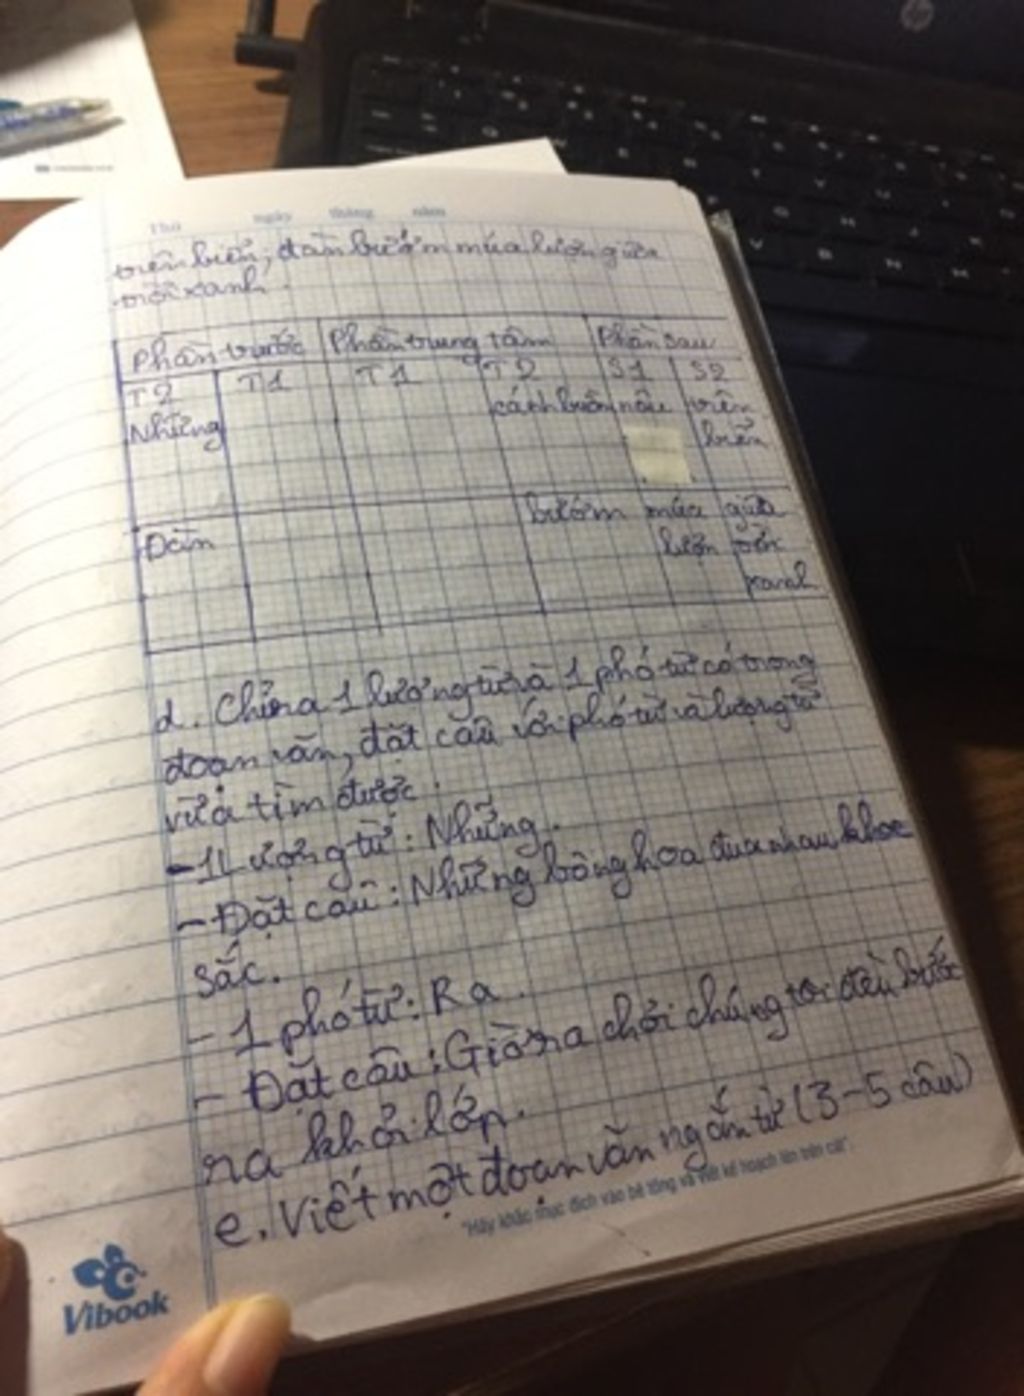 Thứ ngày tháng năm
trên biển, đàn bướm múa lượn giữa
trời xanh.
Phần trước Phần trung tâm Phần sau
T2 T1 T1 T2 S1 S2
Những cánh buồm nâu trên
biển
Đàn bướm múa giữa
lượn trời
xanh
d. Chỉ ra 1 lượng từ và 1 phó từ có trong
đoạn văn, đặt câu với phó từ và lượng từ
vừa tìm được.
- 1 Lượng từ: Những.
- Đặt câu: Những bông hoa đua nhau khoe
sắc.
- 1 phó từ: Ra.
- Đặt câu: Giờ ra chơi chúng tôi đều bước
ra khỏi lớp.
e. Viết một đoạn văn ngắn từ (3-5 câu)
"Hãy khắc mục đích vào bê tông và viết kế hoạch lên trên cát".
Vibook
hp